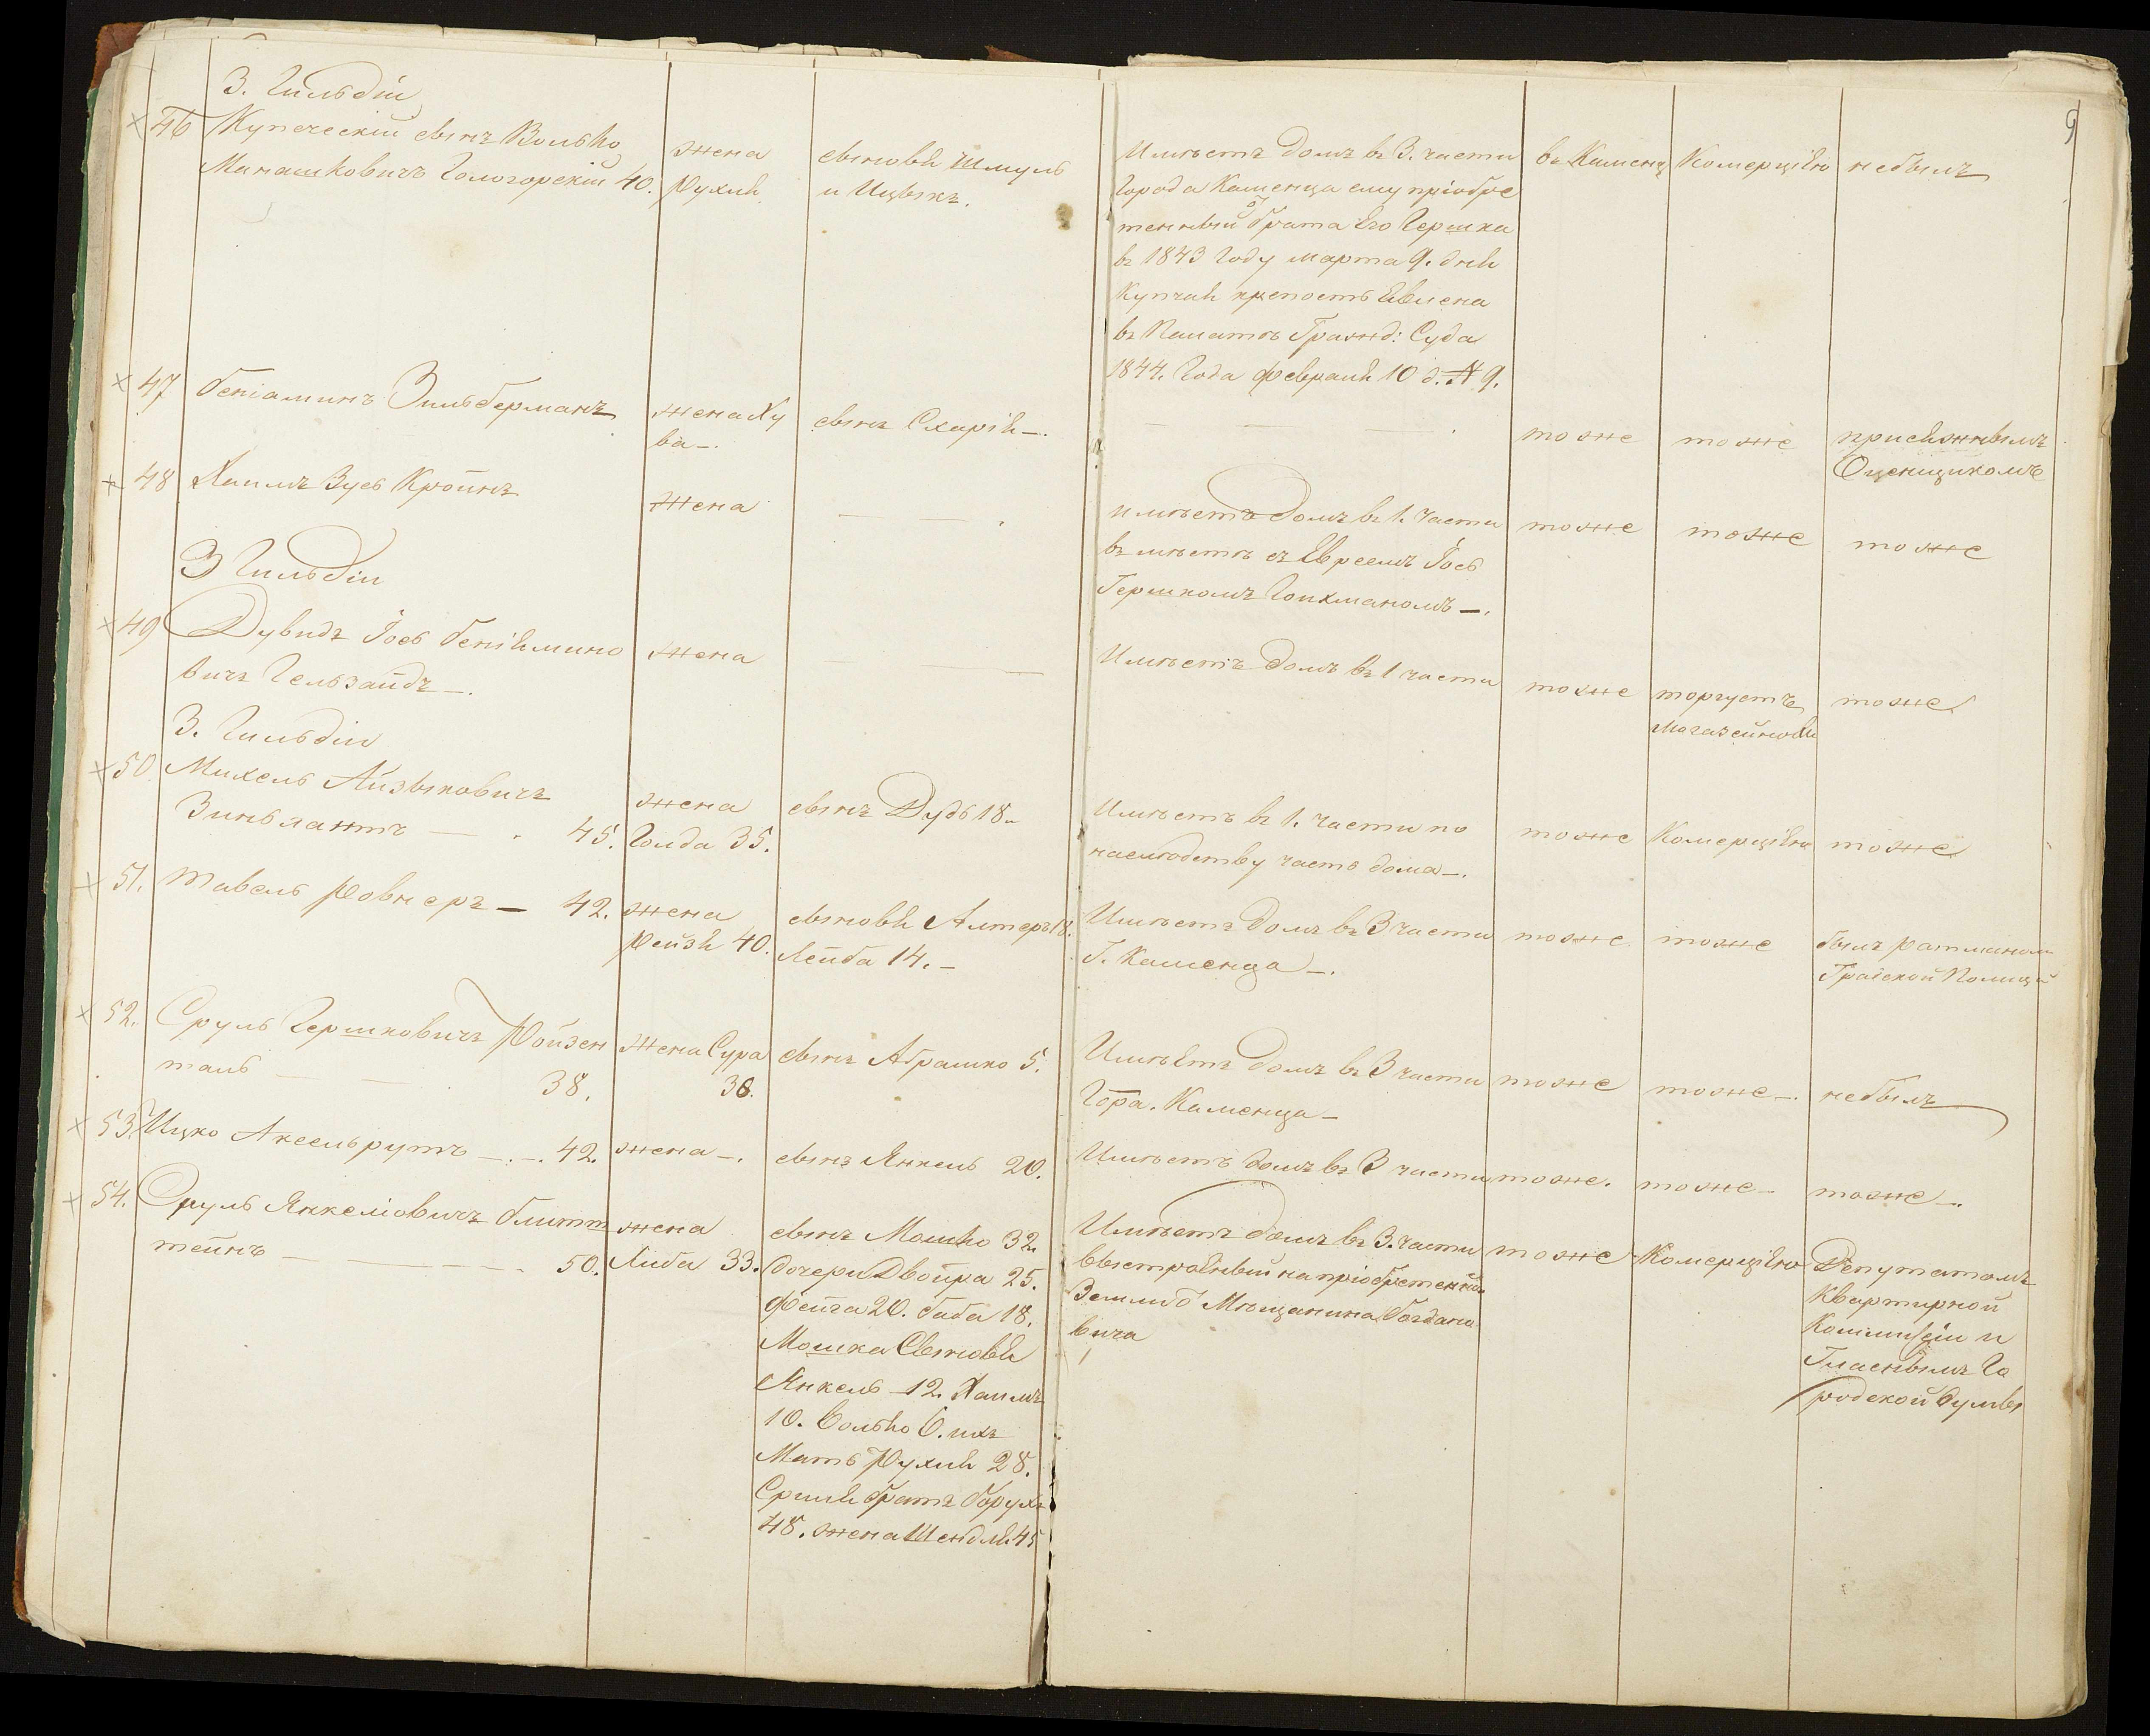 9
3. Гильдіи
46 Купеческій сынъ Волько
Манашковичъ Гологорскій 40.
жена
Рухля
сыновья Шмуль
и Ицыкъ.
Имѣетъ домъ въ 3. части
Города Каменца ему пріобре
тенный отъ брата Его Гершка
въ 1843 году марта 9. дня
Купчая крепость
въ Палатѣ Гражд: Суда
1844. Года февраля 10 д. № 9.
въ Каменц
Комерціею
небылъ
47 Беніаминъ Зильберманъ
жена Ху
ва —.
сынъ Схарія —.
— — — .
тоже
тоже
присяжнымъ
Оценщикомъ
48 Хаимъ Зусь Кройнъ
Жена
— — .
имѣетъ домъ въ 1. части
въ мѣстѣ съ Евреемъ Іось
Гершкомъ Гоихманомъ —.
тоже
тоже
тоже
3 Гильдіи
49 Дувидъ Іось Беніямино
вичъ Гельзайдъ —.
жена
— — —
Имѣетъ домъ въ 1 части
тоже
торгуетъ
Магазейною
тоже
3. Гильдіи
50. Михель Айзыковичъ
Зинблантъ — . 45.
жена
Голда 35.
сынъ Дудь 18.
Имѣетъ въ 1. части по
наслѣдству часть дома —.
тоже
Комерціею
тоже
51. Тавель Ровнеръ — 42.
жена
Рейзя 40.
сыновья Алтеръ 18.
Лейба 14. —
Имѣетъ домъ въ 3 части
Г. Каменца —.
тоже
тоже
былъ ратманом
Градской Полиціи
52. Сруль Гершковичъ Ройзен
таль — — 38.
Жена Сура
36.
сынъ Абрамко 5.
Имѣетъ домъ въ 3 части
Гора. Каменца —
тоже
тоже —.
небылъ
53. Ицко Аксельрутъ —.—. 42.
жена —.
сынъ Янкель 20.
Имѣетъ домъ въ 3 части
тоже.
тоже —
тоже —.
54. Сруль Янкеліовичъ Блитш
тейнъ — — — 50.
жена
Либа 33.
сынъ Мошко 32.
дочери Двойра 25.
Фейга 20. Баба 18.
Мошка Сыновья
Янкель — 12. Хаимъ
10. Волько 6. ихъ
Мать Рухля 28.
Срулія братъ Борухъ
48. жена Шендля 45
Имѣетъ домъ въ 3. части
выстроенный на пріобретенной
Земли отъ Мѣщанина Богдано
вича
тоже
Комерціею
Депутатомъ
Квартирной
Коммисіи и
Гласнымъ Го
родской Думы